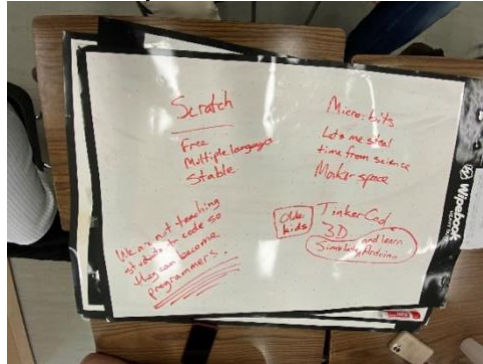 Scratch
Free
Multiple languages
Stable
We are not teaching
students to code so
they can become
programmers.
Micro:bits
Lets me steal
time from science
Maker space
Older
kids
TinkerCad
3D
and learn
Simulate Arduino
Wipebook